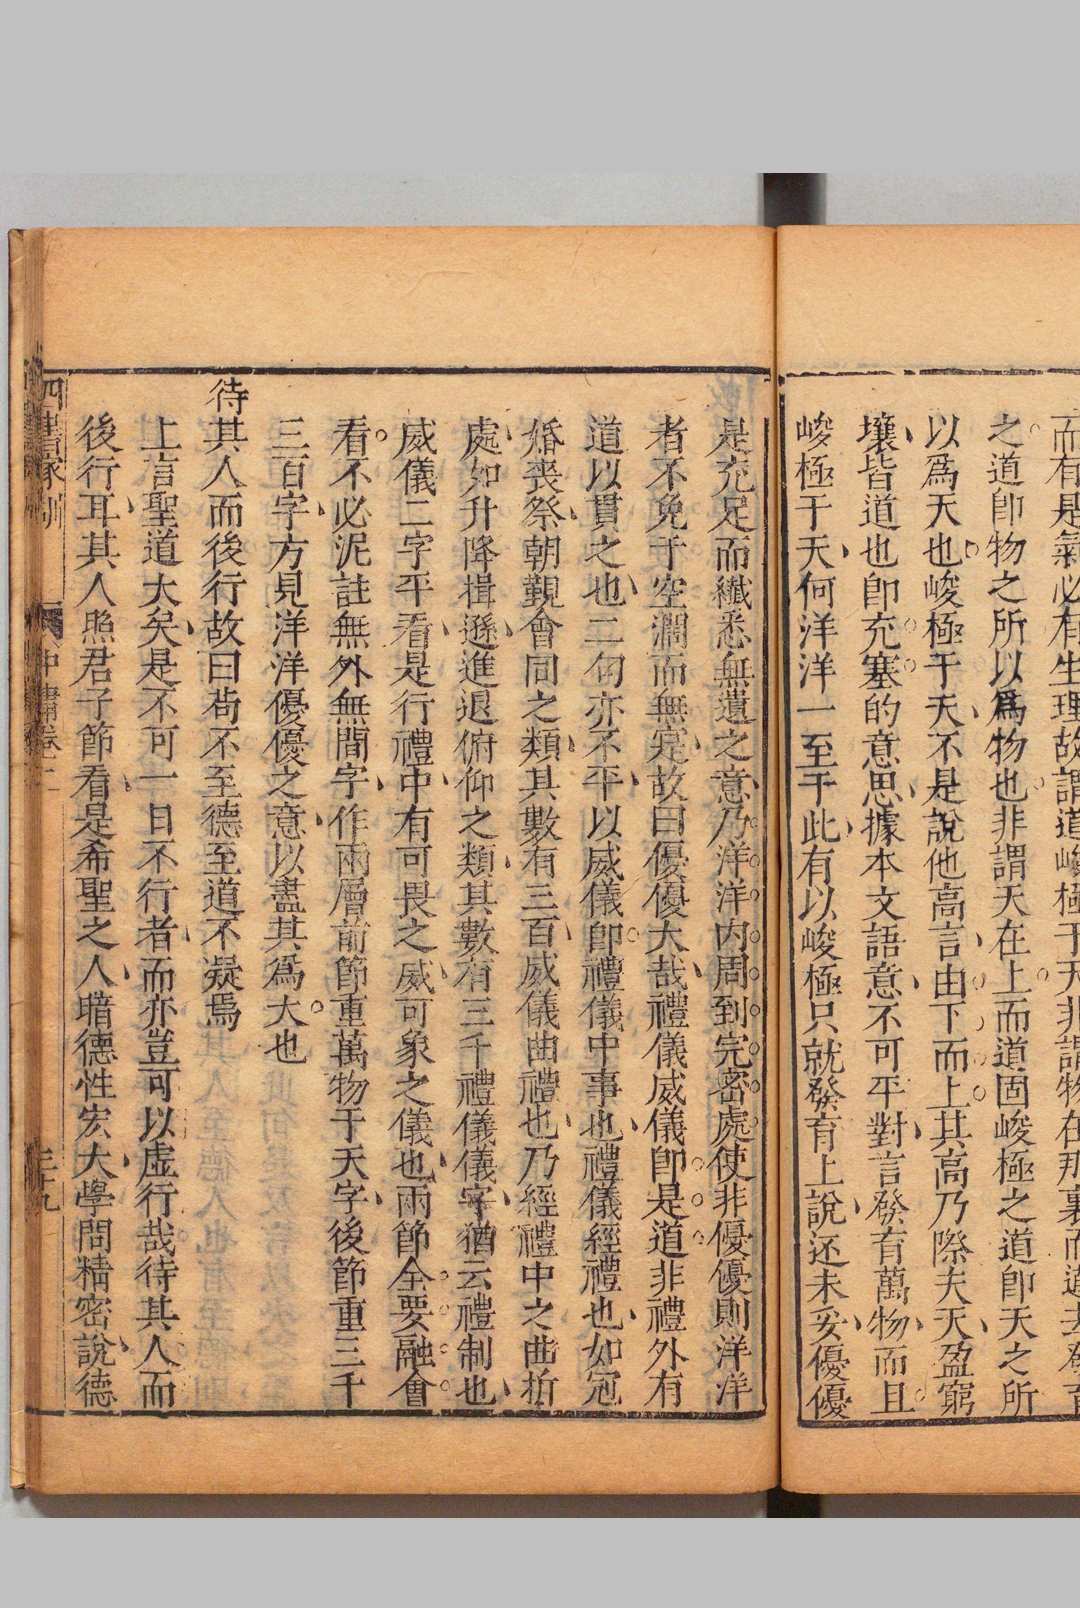 而有是氣必有生理故謂道峻極于天非謂物在那裏而道去發育
之道卽物之所以爲物也非謂天在上而道固峻極之道卽天之所
以爲天也峻極于天不是說他高言由下而上其高乃際夫天盈窮
壤皆道也卽充塞的意思據本文語意不可平對言發育萬物而且
峻極于天何洋洋一至于此有以峻極只就發育上說還未妥優優
是充足而纖悉無遺之意乃洋洋內周到完密處使非優優則洋洋
者不免于空濶而無寔故曰優優大哉禮儀威儀卽是道非禮外有
道以貫之也二句亦不平以威儀卽禮儀中事也禮儀經禮也如冠
婚喪祭朝覲會同之類其數有三百威儀曲禮也乃經禮中之曲折
處如升降揖遜進退俯仰之類其數有三千禮儀儀字猶云禮制也
威儀二字平看是行禮中有可畏之威可象之儀也兩節全要融會
看不必泥註無外無間字作兩層前節重萬物于天字後節重三千
三百字方見洋洋優優之意以盡其爲大也
待其人而後行故曰苟不至德至道不凝焉
上言聖道大矣是不可一日不行者而亦豈可以虛行哉待其人而
後行耳其人照君子節看是希聖之人暗德性宏大學問精密說德
中庸卷二
三十九